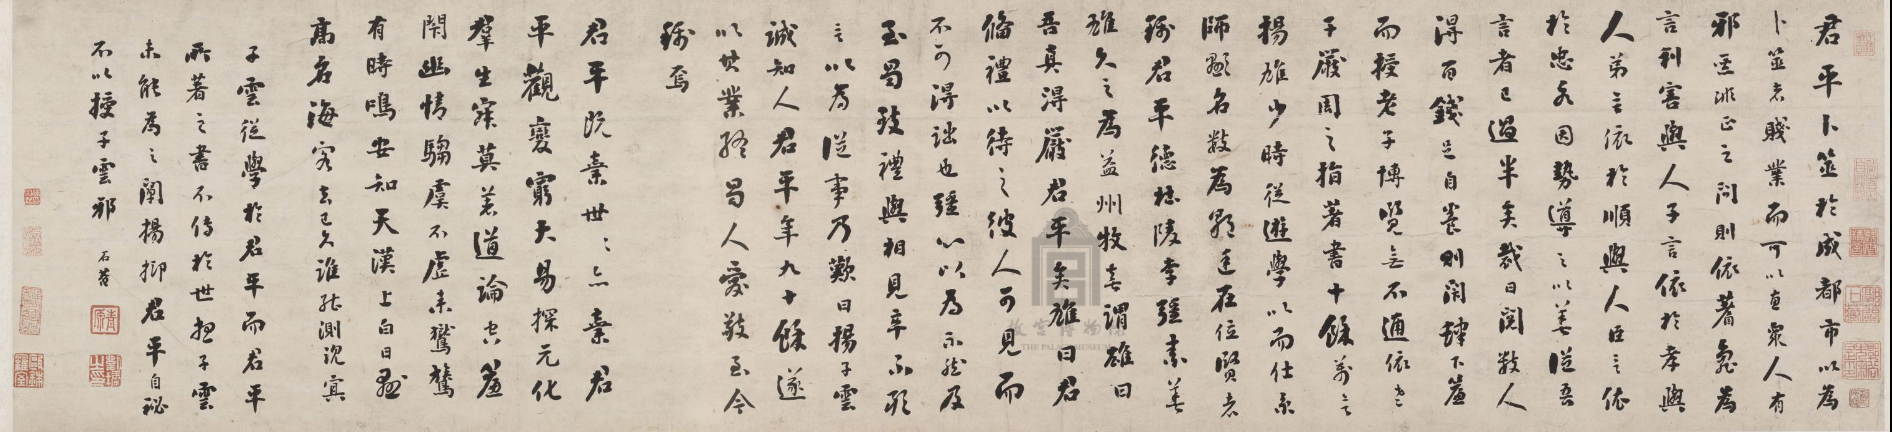 君平卜筮於成都市以為
卜筮者賤業而可以惠眾人有
邪惡非正之問則依蓍龜為
言利害與人子言依於孝與
人弟言依於順與人臣言依
於忠各因勢導之以善從吾
言者已過半矣裁日閱數人
得百錢足自養則閉肆下簾
而授老子博覽無不通依老
子嚴周之指著書十餘萬言
楊雄少時從遊學以而仕京
師顯名數為朝廷在位賢者
稱君平德杜陵李彊素善
雄久之為益州牧喜謂雄曰
吾真得嚴君平矣雄曰君
備禮以待之彼人可見而
不可得詘也彊心以為不然及
至蜀致禮與相見卒不敢
言以為從事乃歎曰揚子雲
誠知人君平年九十餘遂
以其業終蜀人愛敬至今
稱焉
君平既棄世世亦棄君
平觀變窮大易探元化
羣生寂莫著道論空簾
閉幽情騶虞不虛來鸑鷟
有時鳴安知天漢上白日懸
高名海客去已久誰能測沉冥
子雲從學於君平而君平
所著之書不傳於世抑子雲
未能為之闡揚抑君平自祕
不以授子雲邪 石菴
THE PALACE MUSEUM